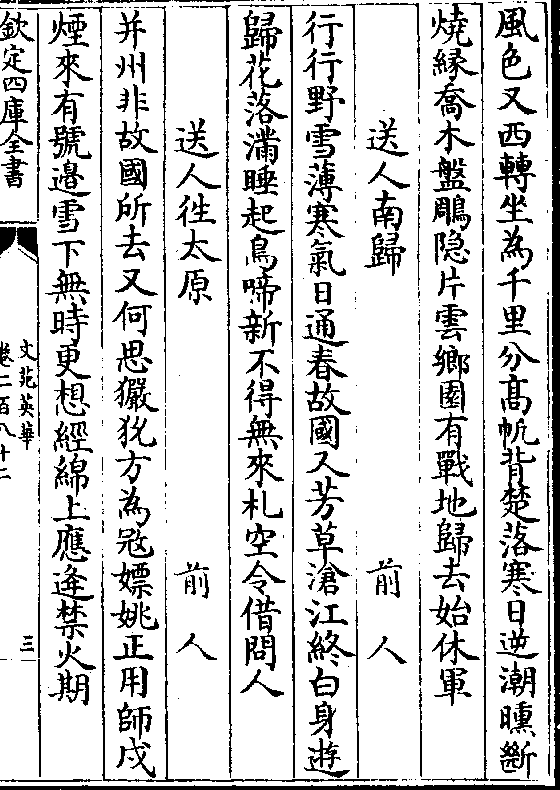 風色又西轉坐為千里分髙帆背楚落寒日逆潮曛斷
燒緣喬木盤鵰隐片雲鄉園有戰地歸去始休軍
送人南歸　前人
行行野雪薄寒氣日通春故國又芳草滄江終白身遊
歸花落滿睡起鳥啼新不得無來札空令借問人
送人徃太原　前人
并州非故國所去又何思玁狁方為冦嫖姚正用師戍
煙來有號邉雪下無時更想經綿上應逄禁火期
欽定四庫全書
文苑英華
卷二百八十二
三